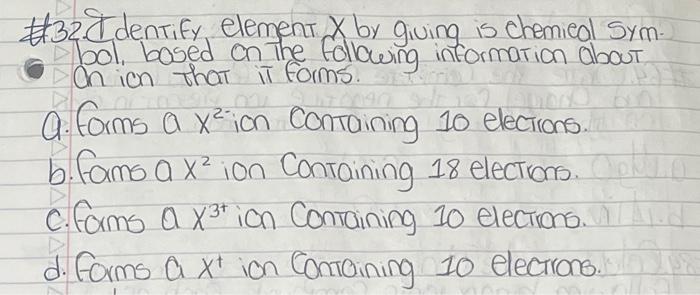 #32. Identify element X by giving is chemical sym-
bol, based on the following information about
an ion that it forms.
a. forms a X²⁻ ion containing 10 electrons.
b. forms a X² ion containing 18 electrons.
c. forms a X³⁺ ion containing 10 electrons.
d. forms a X⁺ ion containing 10 electrons.